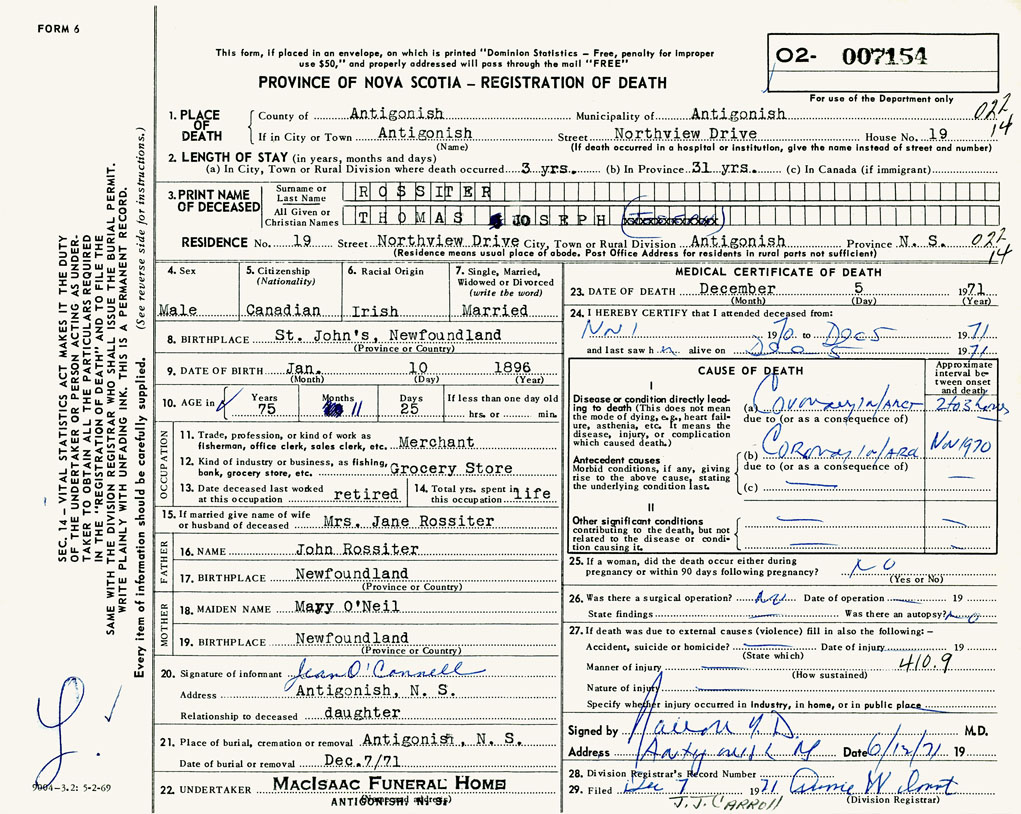 FORM 6
O2- 007154
For use of the Department only
This form, if placed in an envelope, on which is printed "Dominion Statistics – Free, penalty for improper
use $50," and properly addressed will pass through the mail "FREE"
PROVINCE OF NOVA SCOTIA – REGISTRATION OF DEATH
1. PLACE OF DEATH
County of Antigonish Municipality of Antigonish 022
If in City or Town Antigonish Street Northview Drive House No. 19 14
(Name) (If death occurred in a hospital or institution, give the name instead of street and number)
2. LENGTH OF STAY (in years, months and days)
(a) In City, Town or Rural Division where death occurred 3 yrs. (b) In Province 31 yrs. (c) In Canada (if immigrant)
3. PRINT NAME OF DECEASED
Surname or Last Name ROSSITER
All Given or Christian Names THOMAS JOSEPH
RESIDENCE No. 19 Street Northview Drive City, Town or Rural Division Antigonish Province N. S. 022
(Residence means usual place of abode. Post Office Address for residents in rural parts not sufficient) 14
4. Sex
Male
5. Citizenship (Nationality)
Canadian
6. Racial Origin
Irish
7. Single, Married, Widowed or Divorced (write the word)
Married
8. BIRTHPLACE St. John's, Newfoundland
(Province or Country)
9. DATE OF BIRTH Jan. 10 1896
(Month) (Day) (Year)
10. AGE in Years Months Days If less than one day old
75 11 25 hrs. or min.
OCCUPATION
11. Trade, profession, or kind of work as
fisherman, office clerk, sales clerk, etc. Merchant
12. Kind of industry or business, as fishing,
bank, grocery store, etc. Grocery Store
13. Date deceased last worked
at this occupation retired
14. Total yrs. spent in
this occupation life
15. If married give name of wife
or husband of deceased Mrs. Jane Rossiter
FATHER
16. NAME John Rossiter
17. BIRTHPLACE Newfoundland
(Province or Country)
MOTHER
18. MAIDEN NAME Mary O'Neil
19. BIRTHPLACE Newfoundland
(Province or Country)
20. Signature of informant Jean O'Connell
Address Antigonish, N. S.
Relationship to deceased daughter
21. Place of burial, cremation or removal Antigonish, N. S.
Date of burial or removal Dec.7/71
22. UNDERTAKER MacIsaac Funeral Home
ANTIGONISH N. S.
MEDICAL CERTIFICATE OF DEATH
23. DATE OF DEATH December 5 1971
(Month) (Day) (Year)
24. I HEREBY CERTIFY that I attended deceased from:
Nov 1 1970 to Dec 5 1971
and last saw h im alive on Dec 5 1971
CAUSE OF DEATH
Approximate interval between onset and death
I
Disease or condition directly leading to death (This does not mean the mode of dying, e.g., heart failure, asthenia, etc. It means the disease, injury, or complication which caused death.)
(a) Coronary Infarct 2 to 3 hours
due to (or as a consequence of)
Antecedent causes
Morbid conditions, if any, giving rise to the above cause, stating the underlying condition last.
(b) Coronary Infarct Nov 1970
due to (or as a consequence of)
(c)
II
Other significant conditions
contributing to the death, but not related to the disease or condition causing it.
25. If a woman, did the death occur either during
pregnancy or within 90 days following pregnancy? NO
(Yes or No)
26. Was there a surgical operation? No Date of operation 19
State findings Was there an autopsy? No
27. If death was due to external causes (violence) fill in also the following: –
Accident, suicide or homicide? Date of injury 19
(State which)
410.9
Manner of injury
(How sustained)
Nature of injury
Specify whether injury occurred in industry, in home, or in public place
Signed by M.D.
Address Antigonish NS Date 6/12/71 19
28. Division Registrar's Record Number
29. Filed Dec 7 1971
(Division Registrar)
J.J. CARROLL
SEC. 14 – VITAL STATISTICS ACT MAKES IT THE DUTY
OF THE UNDERTAKER OR PERSON ACTING AS UNDER-
TAKER TO OBTAIN ALL THE PARTICULARS REQUIRED
IN THE "REGISTRATION OF DEATH" AND TO FILE THE
SAME WITH THE DIVISION REGISTRAR WHO SHALL ISSUE THE BURIAL PERMIT.
WRITE PLAINLY WITH UNFADING INK. THIS IS A PERMANENT RECORD.
Every item of information should be carefully supplied. (See reverse side for instructions.)
9004-3.2: 5-2-69